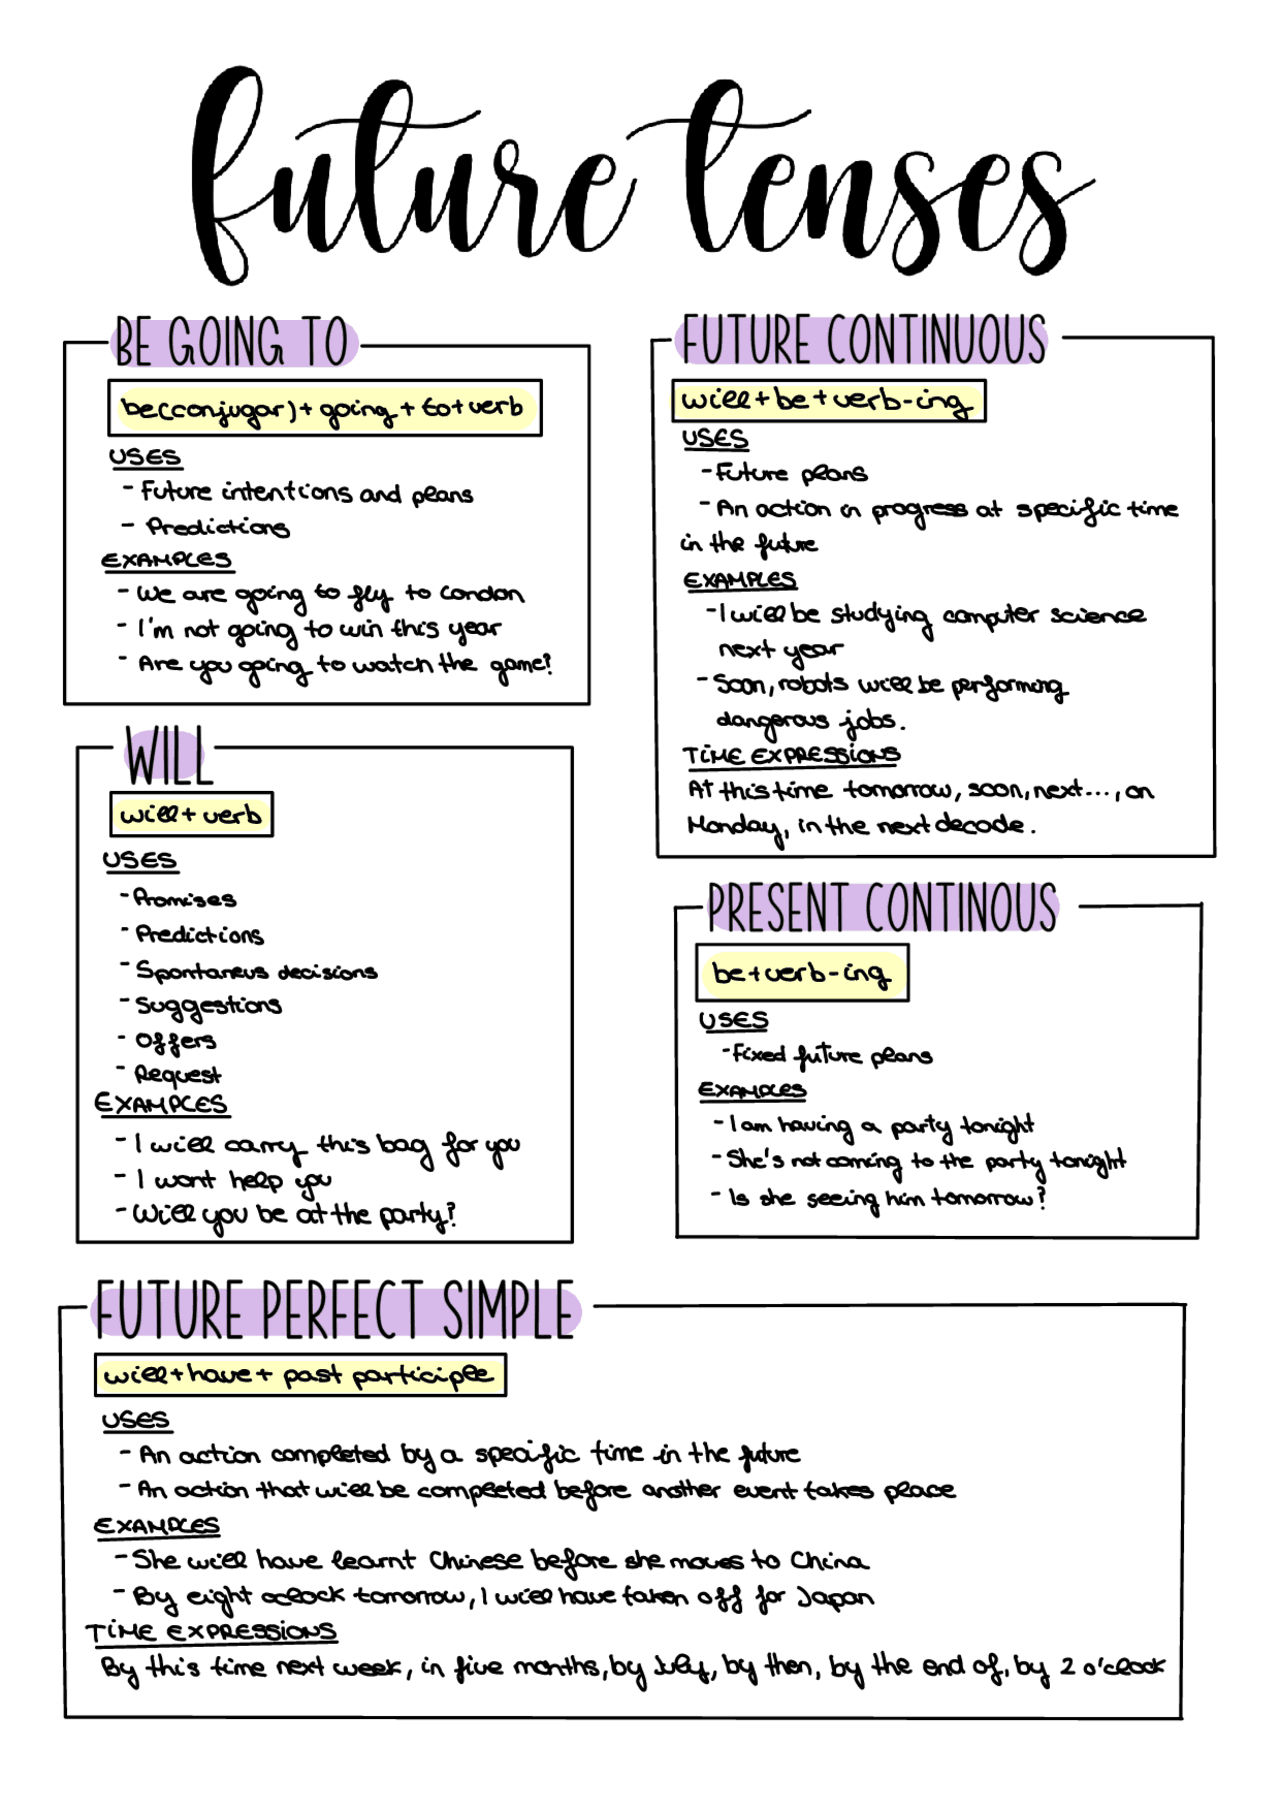 future tenses
BE GOING TO
be(conjugar)+ going + to + verb
USES
- Future intentions and plans
- Predictions
EXAMPLES
- We are going to fly to London
- I'm not going to win this year
- Are you going to watch the game?
WILL
will + verb
USES
- Promises
- Predictions
- Spontaneus decisions
- Suggestions
- Offers
- Request
EXAMPLES
- I will carry this bag for you
- I wont help you
- Will you be at the party?
FUTURE CONTINUOUS
will + be + verb-ing
USES
- Future plans
- An action in progress at specific time
in the future
EXAMPLES
- I will be studying computer science
next year
- Soon, robots will be performing
dangerous jobs.
TIME EXPRESSIONS
At this time tomorrow, soon, next..., on
Monday, in the next decade.
PRESENT CONTINOUS
be + verb-ing
USES
- Fixed future plans
EXAMPLES
- I am having a party tonight
- She's not coming to the party tonight
- Is she seeing him tomorrow?
FUTURE PERFECT SIMPLE
will + have + past participle
USES
- An action completed by a specific time in the future
- An action that will be completed before another event takes place
EXAMPLES
- She will have learnt Chinese before she moves to China
- By eight oclock tomorrow, I will have taken off for Japan
TIME EXPRESSIONS
By this time next week, in five months, by July, by then, by the end of, by 2 o'clock